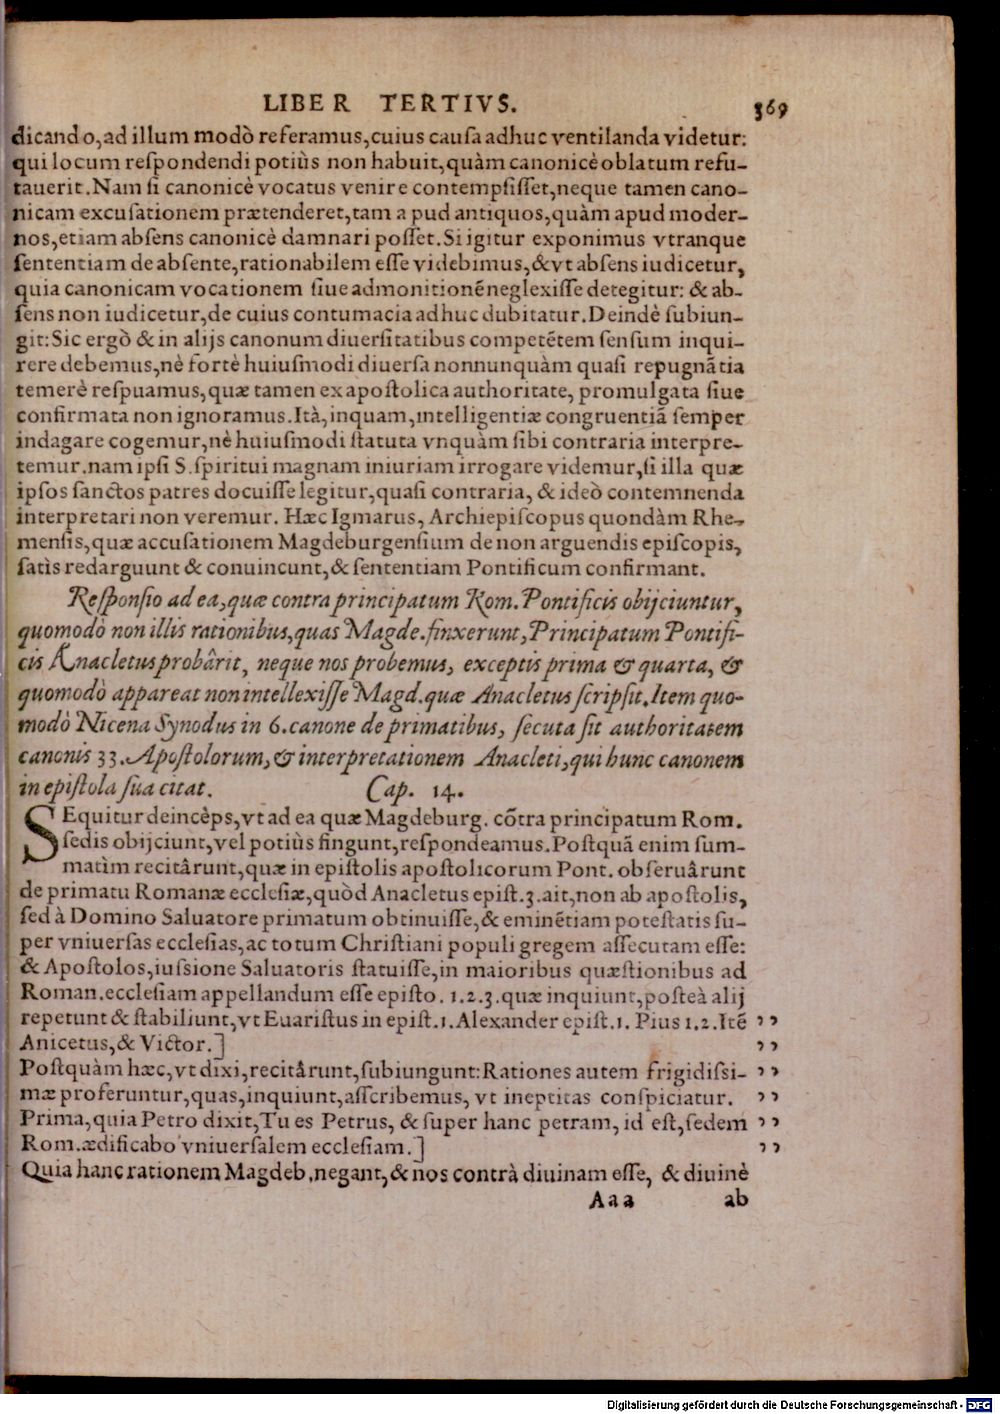 LIBER TERTIVS. 369
dicando, ad illum modò referamus, cuius causa adhuc ventilanda videtur:
qui locum respondendi potiùs non habuit, quàm canonicè oblatum refu-
tauerit. Nam si canonicè vocatus venire contempsisset, neque tamen cano-
nicam excusationem prætenderet, tam apud antiquos, quàm apud moder-
nos, etiam absens canonicè damnari posset. Si igitur exponimus vtranque
sententiam de absente, rationabilem esse videbimus, & vt absens iudicetur,
quia canonicam vocationem siue admonitionē neglexisse detegitur: & ab-
sens non iudicetur, de cuius contumacia adhuc dubitatur. Deindè subiun-
git: Sic ergò & in alijs canonum diuersitatibus competētem sensum inqui-
rere debemus, nè fortè huiusmodi diuersa nonnunquàm quasi repugnātia
temerè respuamus, quæ tamen ex apostolica authoritate, promulgata siue
confirmata non ignoramus. Ità, inquam, intelligentiæ congruentiā semper
indagare cogemur, nè huiusmodi statuta vnquàm sibi contraria interpre-
temur. nam ipsi S. spiritui magnam iniuriam irrogare videmur, si illa quæ
ipsos sanctos patres docuisse legitur, quasi contraria, & ideò contemnenda
interpretari non veremur. Hæc Igmarus, Archiepiscopus quondàm Rhe-
mensis, quæ accusationem Magdeburgensium de non arguendis episcopis,
satìs redarguunt & conuincunt, & sententiam Pontificum confirmant.
Responsio ad ea, quæ contra principatum Rom. Pontificis obijciuntur,
quomodò non illis rationibus, quas Magde. finxerunt, Principatum Pontifi-
cis Anacletus probârit, neque nos probemus, exceptis prima & quarta, &
quomodò appareat non intellexisse Magd. quæ Anacletus scripsit. Item quo-
modò Nicena Synodus in 6. canone de primatibus, secuta sit authoritatem
canonis 33. Apostolorum, & interpretationem Anacleti, qui hunc canonem
in epistola sua citat. Cap. 14.
SEquitur deincèps, vt ad ea quæ Magdeburg. cōtra principatum Rom.
sedis obijciunt, vel potiùs fingunt, respondeamus. Postquā enim sum-
matìm recitârunt, quæ in epistolis apostolicorum Pont. obseruârunt
de primatu Romanæ ecclesiæ, quòd Anacletus epist. 3. ait, non ab apostolis,
sed à Domino Saluatore primatum obtinuisse, & eminētiam potestatis su-
per vniuersas ecclesias, ac totum Christiani populi gregem assecutam esse:
& Apostolos, iussione Saluatoris statuisse, in maioribus quæstionibus ad
Roman. ecclesiam appellandum esse episto. 1. 2. 3. quæ inquiunt, posteà alij
repetunt & stabiliunt, vt Euaristus in epist. 1. Alexander epist. 1. Pius 1. 2. Itē ,,
Anicetus, & Victor.] ,,
Postquàm hæc, vt dixi, recitârunt, subiungunt: Rationes autem frigidissi- ,,
mæ proferuntur, quas, inquiunt, asscribemus, vt ineptitas conspiciatur. ,,
Prima, quia Petro dixit, Tu es Petrus, & super hanc petram, id est, sedem ,,
Rom. ædificabo vniuersalem ecclesiam.] ,,
Quia hanc rationem Magdeb. negant, & nos contrà diuinam esse, & diuinè
Aaa ab
Digitalisierung gefördert durch die Deutsche Forschungsgemeinschaft - DFG